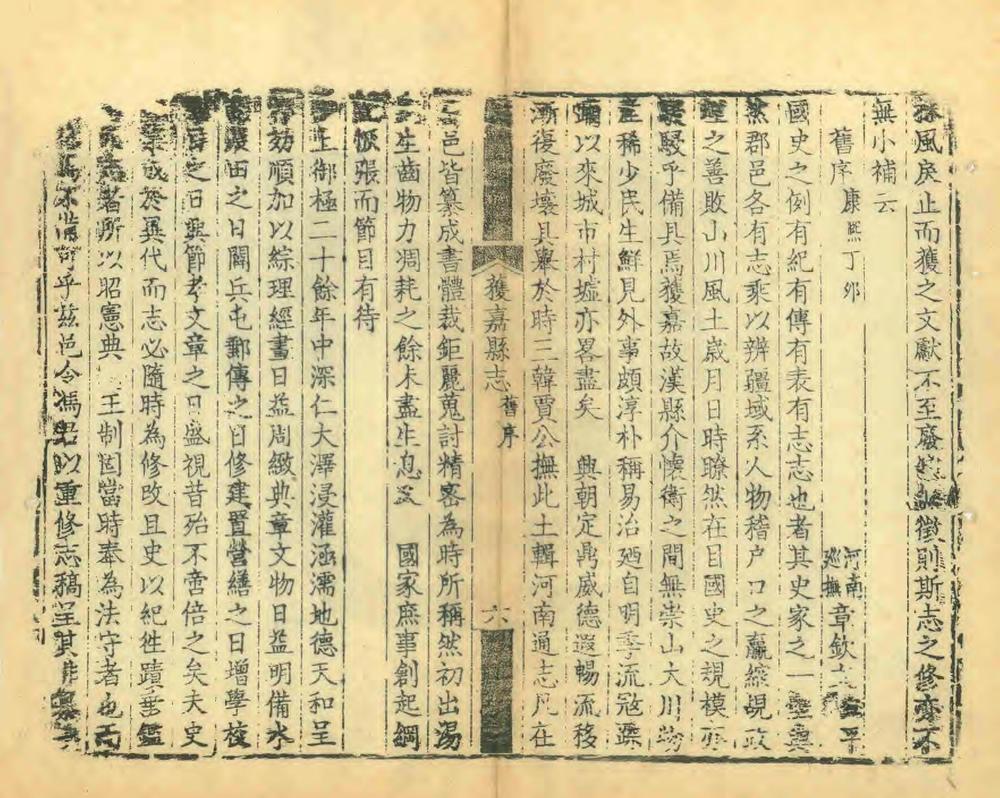 採風戾止而獲之文獻不至廢墜無徵則斯志之修亦不
無小補云
舊序 康熙丁卯 河南巡撫章欽文
國史之例有紀有傳有表有志志也者其史家之一體與
然郡邑各有志乘以辨疆域系人物稽戶口之贏縮覘政
理之善敗山川風土歲月日時瞭然在目國史之規模亦
駸駸乎備具焉獲嘉故漢縣介懷衛之間無崇山大川物
產稀少民生鮮見外事頗淳朴稱易治廼自明季流寇躁
以來城市村墟亦畧盡矣 興朝定鼎威德遐暢流移
漸復廢壞具舉於時三韓賈公撫此土輯河南通志凡在
獲嘉縣志 舊序 六
邑皆纂成書體裁鉅麗蒐討精密為時所稱然初出湯
生齒物力凋耗之餘未盡生息又 國家庶事創起綱
恢張而節目有待
上御極二十餘年中深仁大澤浸灌涵濡地德天和呈
効順加以綜理經書日益周緻典章文物日益明備水
田之日闢兵屯郵傳之日修建置營繕之日增學校
之日興節孝文章之日盛視昔殆不啻倍之矣夫史
成於異代而志必隨時為修改且史以紀徃蹟垂鑑
者所以昭憲典 王制固當時奉為法守者也而
不備可乎茲邑令馮君以重修志稿呈其